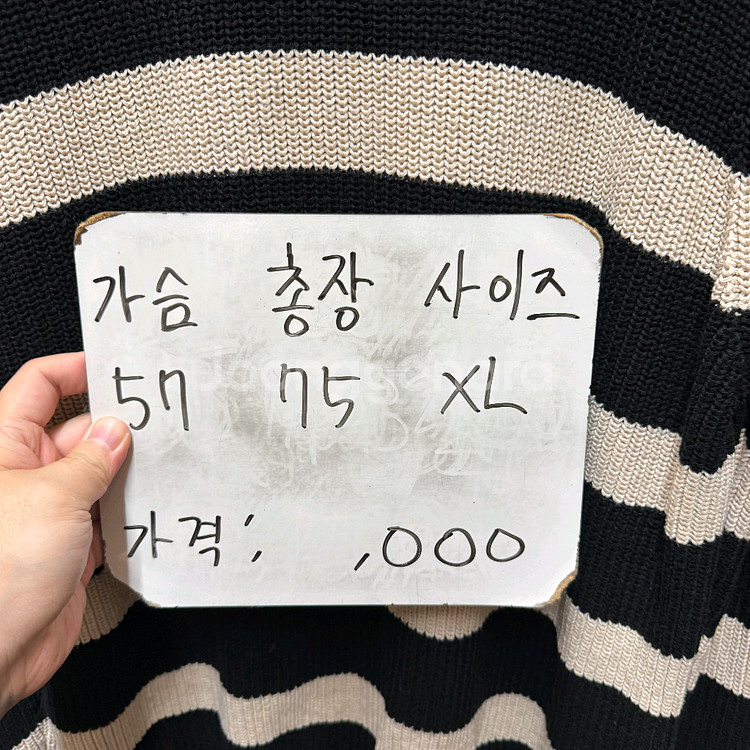 가슴 총장 사이즈
57 75 XL
가격; ,000